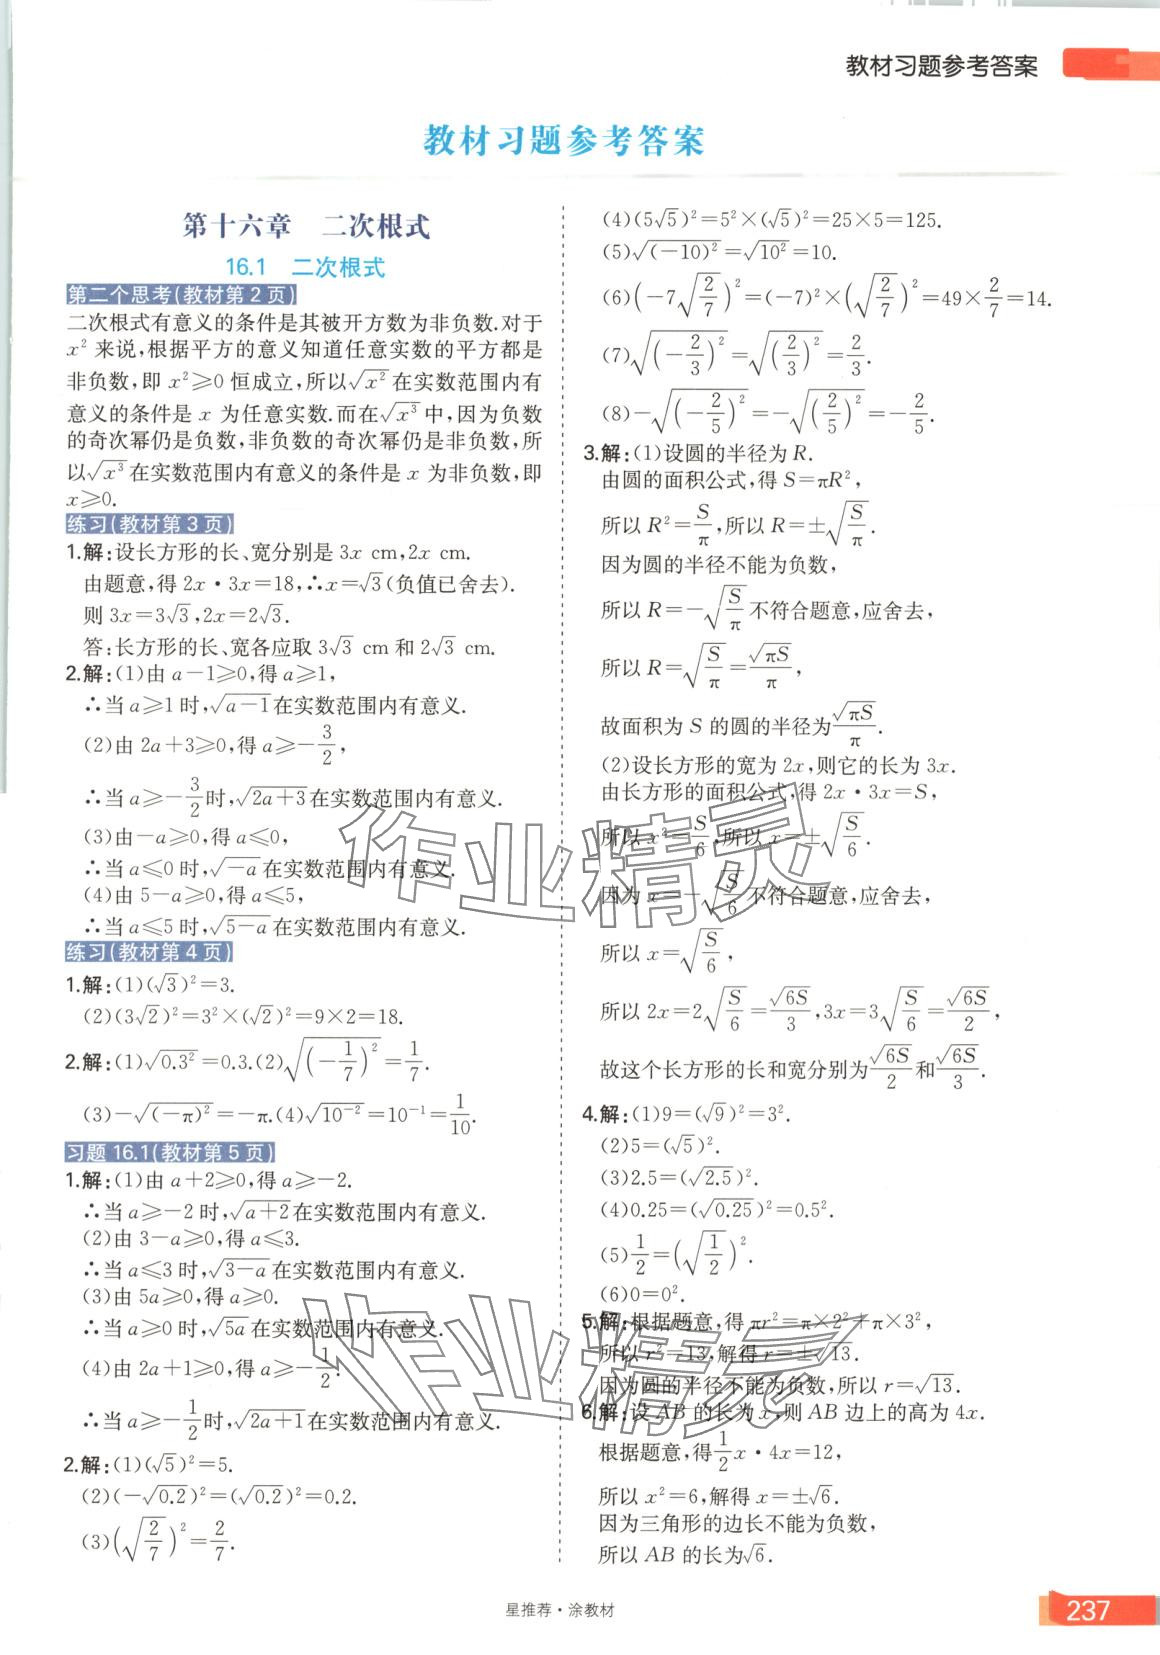 教材习题参考答案
教材习题参考答案
第十六章 二次根式
16.1 二次根式
第二个思考(教材第2页)
二次根式有意义的条件是其被开方数为非负数.对于
x²来说,根据平方的意义知道任意实数的平方都是
非负数,即x²≥0恒成立,所以√(x²)在实数范围内有
意义的条件是x为任意实数.而在√(x³)中,因为负数
的奇次幂仍是负数,非负数的奇次幂仍是非负数,所
以√(x³)在实数范围内有意义的条件是x为非负数,即
x≥0.
练习(教材第3页)
1.解:设长方形的长、宽分别是3x cm,2x cm.
由题意,得2x·3x=18,∴x=√3(负值已舍去).
则3x=3√3,2x=2√3.
答:长方形的长、宽各应取3√3 cm和2√3 cm.
2.解:(1)由a-1≥0,得a≥1,
∴当a≥1时,√(a-1)在实数范围内有意义.
(2)由2a+3≥0,得a≥-3/2,
∴当a≥-3/2时,√(2a+3)在实数范围内有意义.
(3)由-a≥0,得a≤0,
∴当a≤0时,√(-a)在实数范围内有意义.
(4)由5-a≥0,得a≤5,
∴当a≤5时,√(5-a)在实数范围内有意义.
练习(教材第4页)
1.解:(1)(√3)²=3.
(2)(3√2)²=3²×(√2)²=9×2=18.
2.解:(1)√(0.3²)=0.3.(2)√((-1/7)²)=1/7.
(3)-√((-π)²)=-π.(4)√(10⁻²)=10⁻¹=1/10.
习题16.1(教材第5页)
1.解:(1)由a+2≥0,得a≥-2.
∴当a≥-2时,√(a+2)在实数范围内有意义.
(2)由3-a≥0,得a≤3.
∴当a≤3时,√(3-a)在实数范围内有意义.
(3)由5a≥0,得a≥0.
∴当a≥0时,√(5a)在实数范围内有意义.
(4)由2a+1≥0,得a≥-1/2.
∴当a≥-1/2时,√(2a+1)在实数范围内有意义.
2.解:(1)(√5)²=5.
(2)(-√0.2)²=(√0.2)²=0.2.
(3)(√(2/7))²=2/7.
(4)(5√5)²=5²×(√5)²=25×5=125.
(5)√((-10)²)=√(10²)=10.
(6)(-7√(2/7))²=(-7)²×(√(2/7))²=49×2/7=14.
(7)√((-2/3)²)=√((2/3)²)=2/3.
(8)-√((-2/5)²)=-√((2/5)²)=-2/5.
3.解:(1)设圆的半径为R.
由圆的面积公式,得S=πR²,
所以R²=S/π,所以R=±√(S/π).
因为圆的半径不能为负数,
所以R=-√(S/π)不符合题意,应舍去,
所以R=√(S/π)=√(πS)/π,
故面积为S的圆的半径为√(πS)/π.
(2)设长方形的宽为2x,则它的长为3x.
由长方形的面积公式,得2x·3x=S,
所以x²=S/6,所以x=±√(S/6).
因为x=-√(S/6)不符合题意,应舍去,
所以x=√(S/6),
所以2x=2√(S/6)=√(6S)/3,3x=3√(S/6)=√(6S)/2,
故这个长方形的长和宽分别为√(6S)/2和√(6S)/3.
4.解:(1)9=(√9)²=3².
(2)5=(√5)².
(3)2.5=(√2.5)².
(4)0.25=(√0.25)²=0.5².
(5)1/2=(√(1/2))².
(6)0=0².
5.解:根据题意,得πr²=π×2²+π×3²,
所以r²=13,解得r=±√13.
因为圆的半径不能为负数,所以r=√13.
6.解:设AB的长为x,则AB边上的高为4x.
根据题意,得1/2x·4x=12,
所以x²=6,解得x=±√6.
因为三角形的边长不能为负数,
所以AB的长为√6.
作业精灵
作业精灵
星推荐·涂教材
237